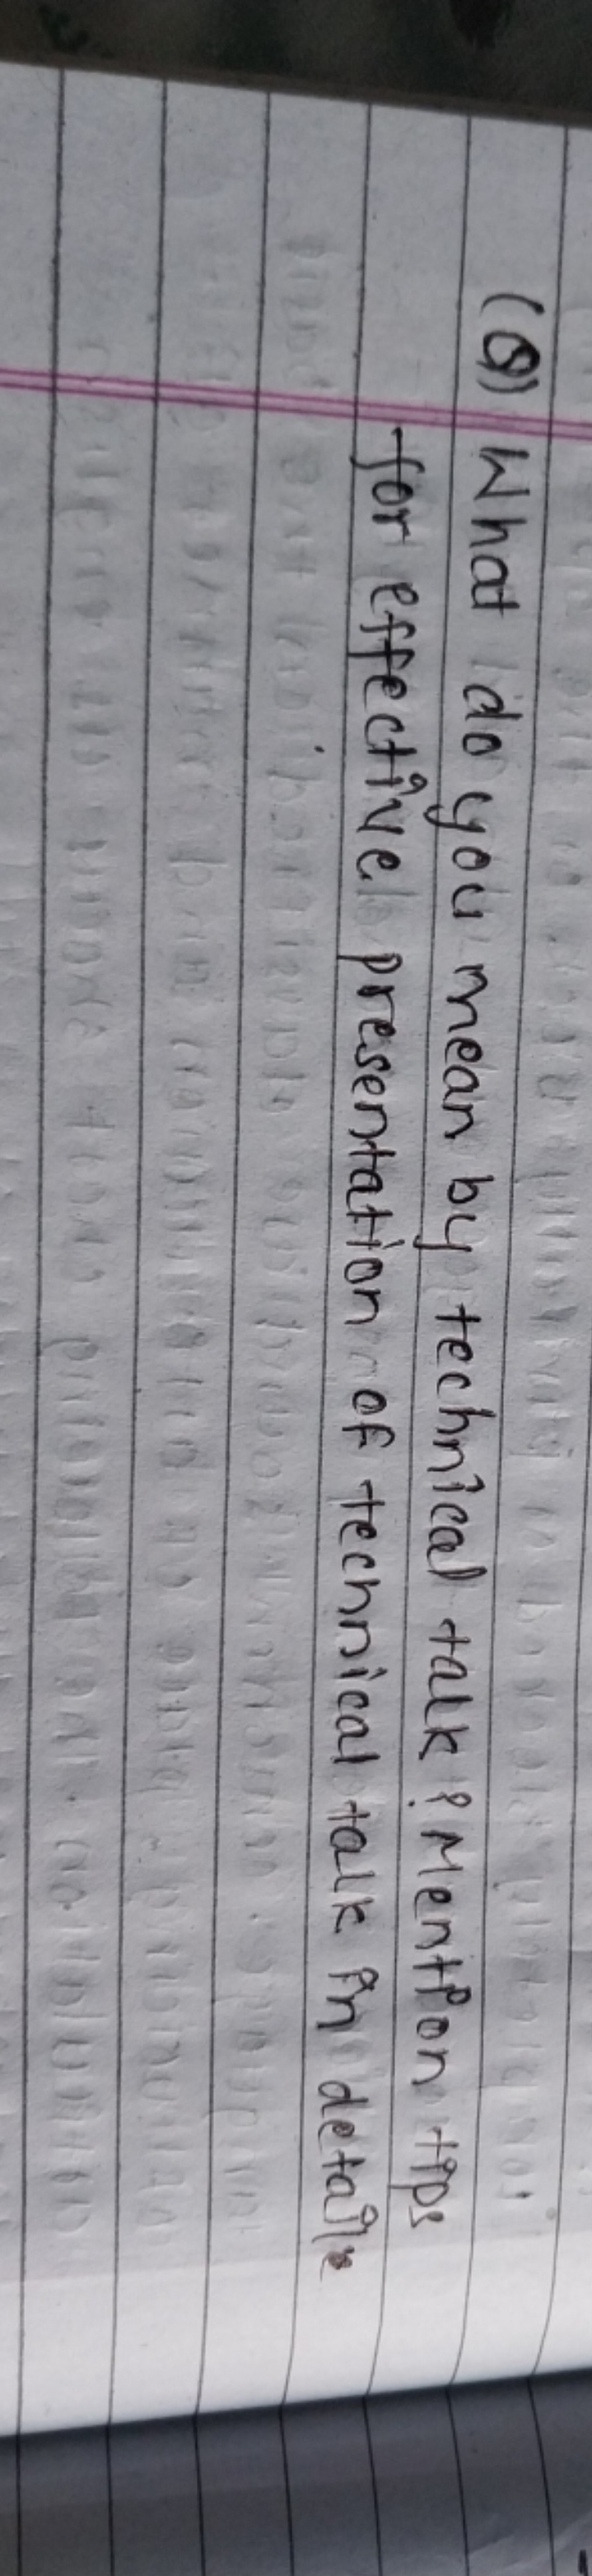 (Q) What do you mean by technical talk? Mention tips
for effective presentation of technical talk in detail.